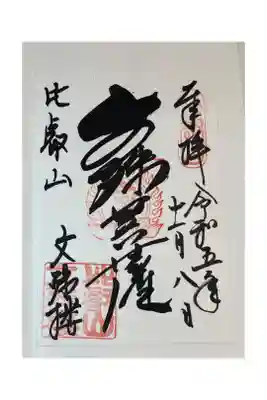 奉拝 令和五年
十一月八日
文殊菩薩
比叡山
文殊楼